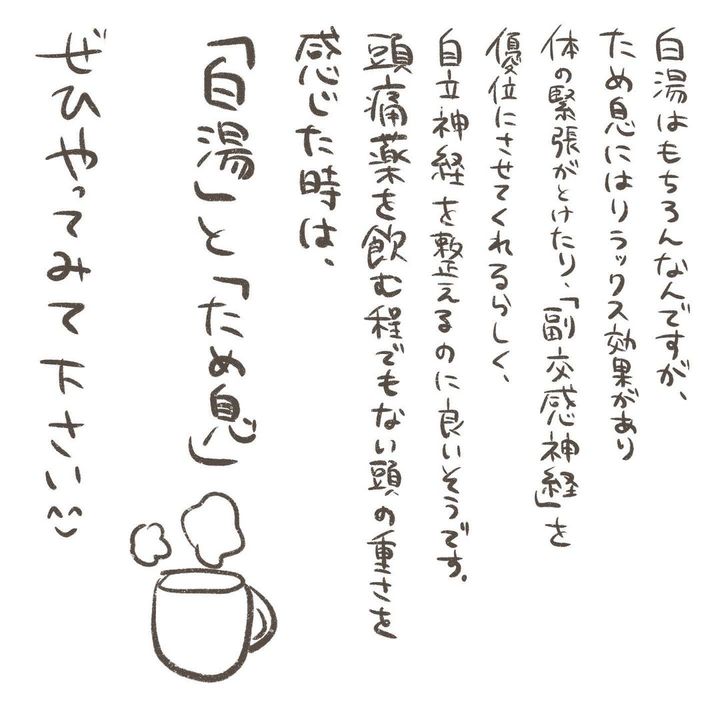 白湯はもちろんなんですが、
ため息にはリラックス効果があり
体の緊張がとけたり、「副交感神経」を
優位にさせてくれるらしく、
自立神経を整えるのに良いそうです。
頭痛薬を飲む程でもない頭の重さを
感じた時は、
「白湯」と「ため息」
ぜひやってみて下さい^^